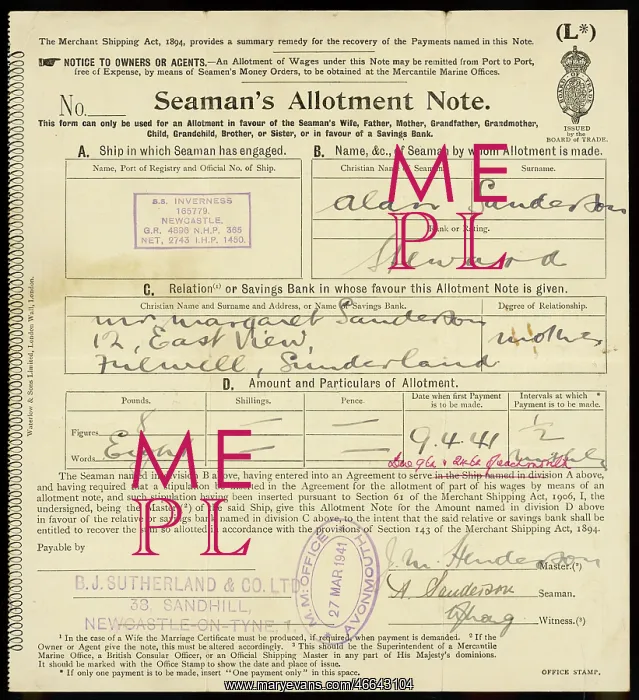 (L*)
The Merchant Shipping Act, 1894, provides a summary remedy for the recovery of the Payments named in this Note.
☛ NOTICE TO OWNERS OR AGENTS.—An Allotment of Wages under this Note may be remitted from Port to Port,
free of Expense, by means of Seamen's Money Orders, to be obtained at the Mercantile Marine Offices.
ISSUED
by the
BOARD OF TRADE.
No.
Seaman's Allotment Note.
This form can only be used for an Allotment in favour of the Seaman's Wife, Father, Mother, Grandfather, Grandmother,
Child, Grandchild, Brother, or Sister, or in favour of a Savings Bank.
A. Ship in which Seaman has engaged.
Name, Port of Registry and Official No. of Ship.
S.S. INVERNESS
165779.
NEWCASTLE.
G.R. 4898 N.H.P. 365
NET, 2743 I.H.P. 1450.
B. Name, &c., of Seaman by whom Allotment is made.
Christian Name of Seaman. Surname.
Alan Sanderson
Rank or Rating.
Steward
C. Relation(¹) or Savings Bank in whose favour this Allotment Note is given.
Christian Name and Surname and Address, or Name of Savings Bank. Degree of Relationship.
Mrs Margaret Sanderson mother
12, East View,
Fulwell, Sunderland
D. Amount and Particulars of Allotment.
Pounds. Shillings. Pence. Date when first Payment is to be made. Intervals at which * Payment is to be made.
Figures 8 — — 9.4.41 ½
Words Eight — —
The Seaman named in division B above, having entered into an Agreement to serve in the Ship named in division A above,
and having required that a stipulation be inserted in the Agreement for the allotment of part of his wages by means of an
allotment note, and such stipulation having been inserted pursuant to Section 61 of the Merchant Shipping Act, 1906, I, the
undersigned, being the Master(²) of the said Ship, give this Allotment Note for the Amount named in division D above
in favour of the relative or savings bank named in division C above, to the intent that the said relative or savings bank shall
be entitled to recover the sum so allotted in accordance with the provisions of Section 143 of the Merchant Shipping Act, 1894.
Payable by
B.J. SUTHERLAND & CO. LTD
38, SANDHILL,
NEWCASTLE-ON-TYNE, 1.
M.M. OFFICE
27 MAR 1941
AVONMOUTH
J. M. Henderson Master.(²)
A. Sanderson Seaman.
Witness.(³)
¹ In the case of a Wife the Marriage Certificate must be produced, if required, when payment is demanded. ² If the
Owner or Agent give the note, this must be altered accordingly. ³ This should be the Superintendent of a Mercantile
Marine Office, a British Consular Officer, or an Official Shipping Master in any part of His Majesty's dominions.
It should be marked with the Office Stamp to show the date and place of issue.
* If only one payment is to be made, insert "One payment only" in this space.
OFFICE STAMP.
Waterlow & Sons Limited, London Wall, London.
ME
PL
ME
PL
www.maryevans.com/46643104